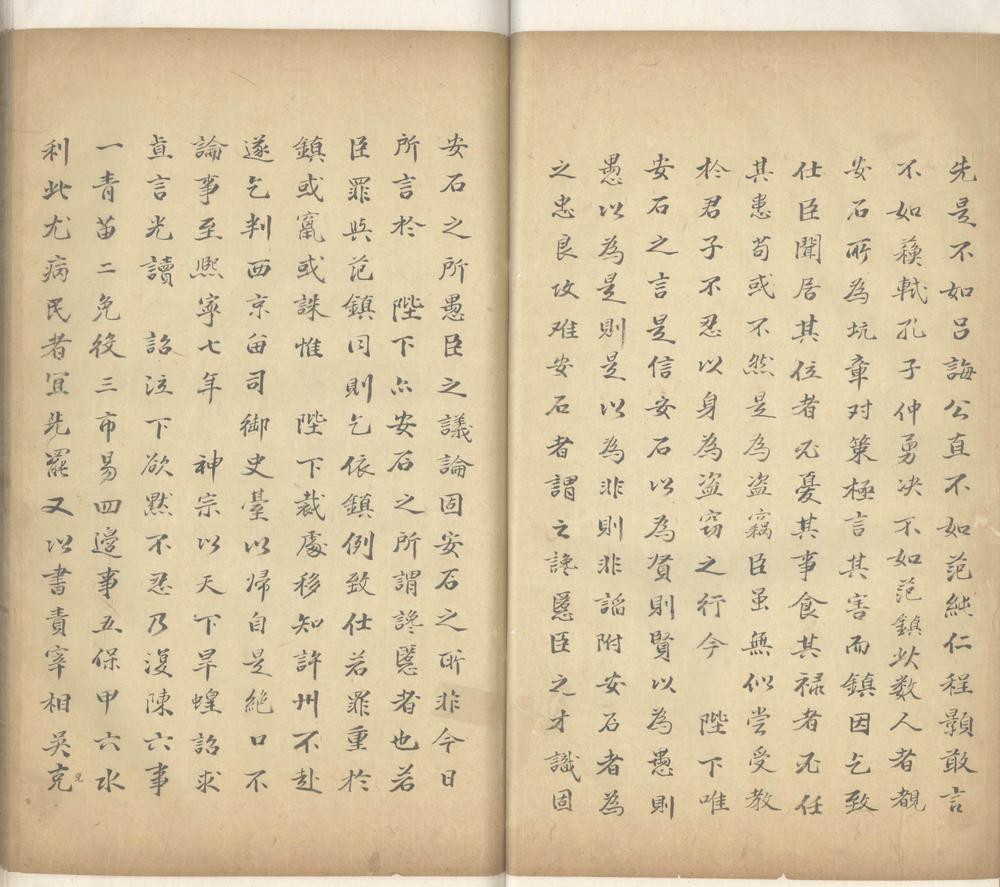 先是不如呂誨公直不如范純仁程顥敢言
不如蘓軾孔子仲勇决不如范鎮此数人者覩
安石所為坑章对策極言其害而鎮因乞致
仕臣聞居其位者必憂其事食其禄者必任
其患苟或不然是為盗竊臣虽無似尝受教
扵君子不忍以身為盗窃之行今 陛下唯
安石之言是信安石以為贤則賢以為愚則
愚以為是則是以為非則非謟附安石者為
之忠良攻难安石者謂之讒慝臣之才識固
安石之所愚臣之議論固安石之所非今日
所言扵 陛下亦安石之所謂讒慝者也若
臣罪與范鎮同則乞依鎮例致仕若罪重扵
鎮或竄或誅惟 陛下裁處移知許州不赴
遂乞判西京畱司御史臺以帰自是絶口不
論事至熈寧七年 神宗以天下旱蝗詔求
直言光讀 詔泣下欲黙不忍乃復陳六事
一青苗二免役三市昜四邉事五保甲六水
利此尤病民者宜先罷又以書責宰相吴克